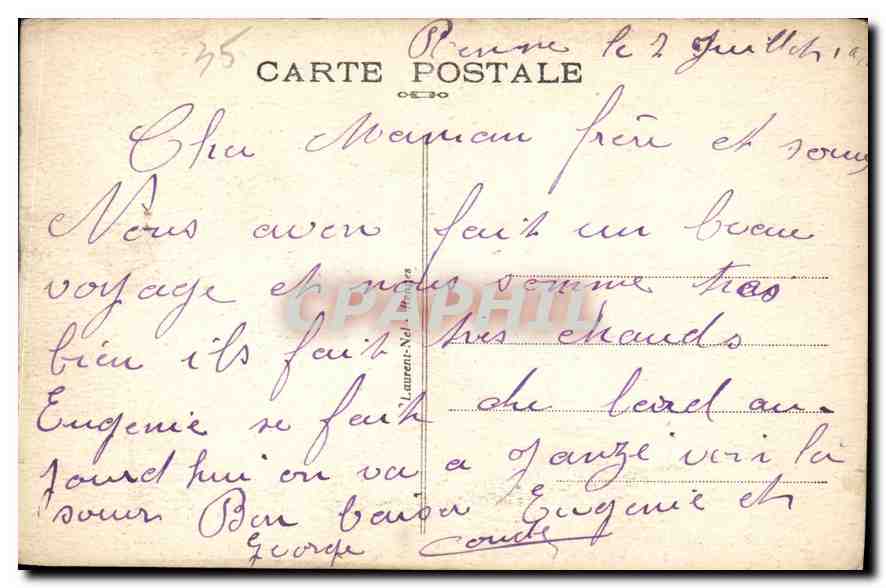 35
Renne le 2 Juillet 19
CARTE POSTALE
Cher Maman frère et soeur
Nous avon fait un beau
voyage et nous somme tres
bien ils fait tres chauds
Eugenie se fait du lard au-
jourd hui on va a Janzé voir la
soeur Bon baiser Eugenie et
George
Laurent-Nel - Rennes
CPAPHIL